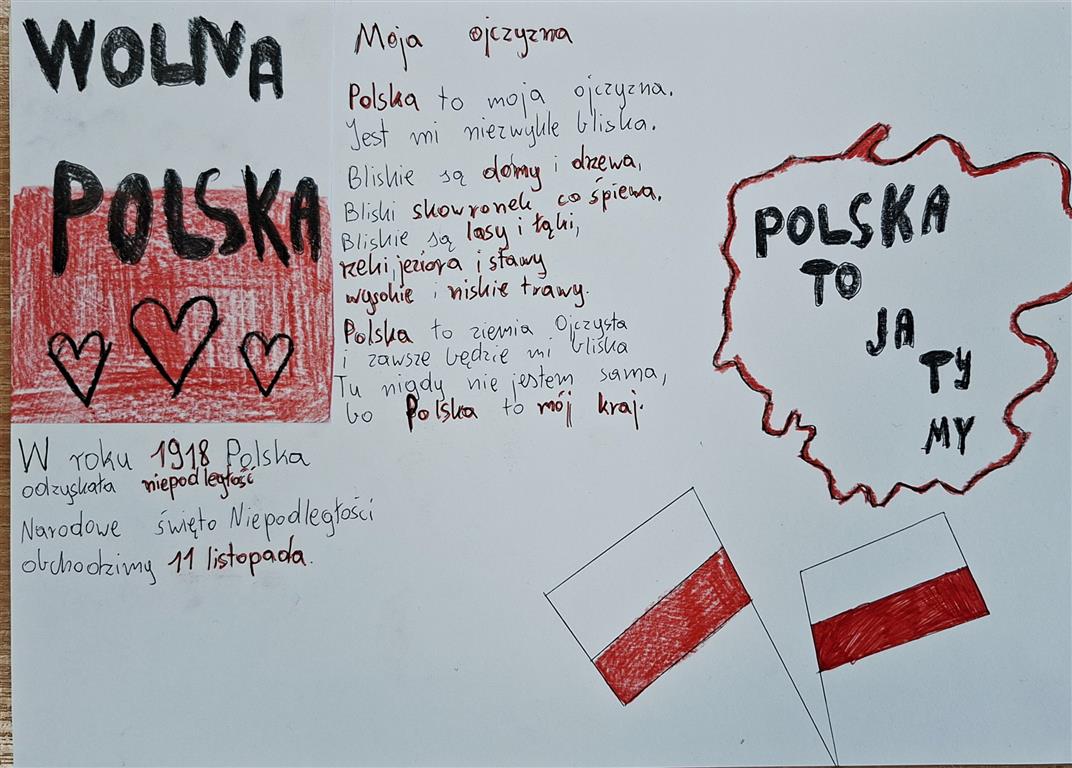 WOLNA
POLSKA
W roku 1918 Polska
odzyskała niepodległość
Narodowe święto Niepodległości
obchodzimy 11 listopada.
Moja ojczyzna
Polska to moja ojczyzna.
Jest mi niezwykle bliska.
Bliskie są domy i drzewa,
Bliski skowronek co śpiewa.
Bliskie są lasy i łąki,
rzeki, jeziora i stawy
wysokie i niskie trawy.
Polska to ziemia Ojczysta
i zawsze będzie mi bliska
Tu nigdy nie jestem sama,
bo Polska to mój kraj.
POLSKA
TO
JA
TY
MY